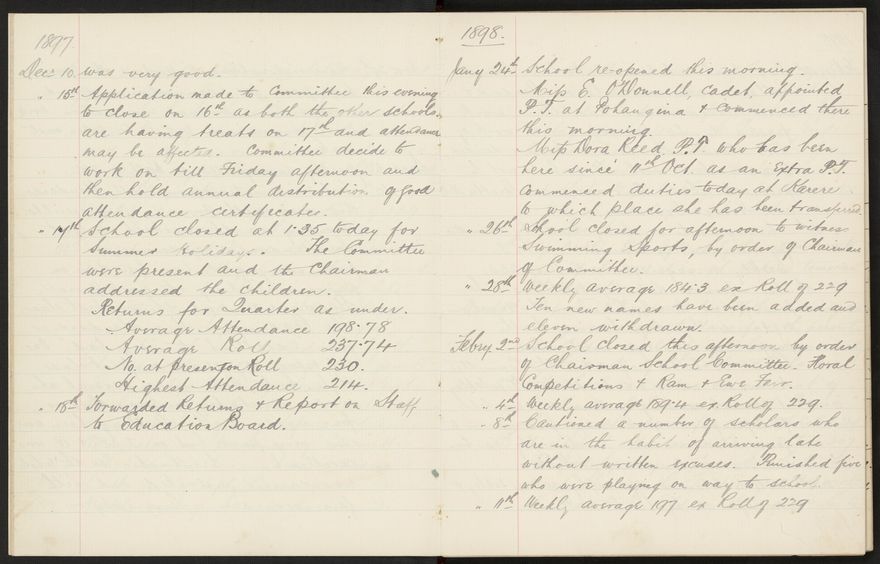 1897
Decr 10. was very good.
" 15th Application made to Committee this evening
to close on 16th as both the other schools
are having treats on 17th and attendance
may be affected. Committee decide to
work on till Friday afternoon and
then hold annual distribution of good
attendance certificates.
" 17th School closed at 1.25 today for
Summer Holidays. The Committee
were present and the Chairman
addressed the children.
Returns for Quarter as under.
Average Attendance 198.78
Average Roll 237.74
No. at present on Roll 230.
Highest Attendance 214.
" 18th Forwarded Returns & Report on Staff
to Education Board.
1898.
Jany 24th School re-opened this morning.
Miss E. O'Donnell, cadet, appointed
P.T. at Pohangina & commenced there
this morning.
Miss Dora Reed P.T. who has been
here since 11th Oct. as an Extra P.T.
commenced duties today at Karere
to which place she has been transferred.
" 26th School closed for afternoon to witness
Swimming Sports, by order of Chairman
of Committee.
" 28th Weekly average 184.3 ex Roll of 229
Ten new names have been added and
eleven withdrawn.
Febry 2nd School closed this afternoon by order
of Chairman School Committee. Floral
Competitions & Ram & Ewe Fair.
" 4th Weekly average 189.4 ex. Roll of 229.
" 8th Cautioned a number of scholars who
are in the habit of arriving late
without written excuses. Punished five
who were playing on way to school.
" 11th Weekly average 197 ex Roll of 229